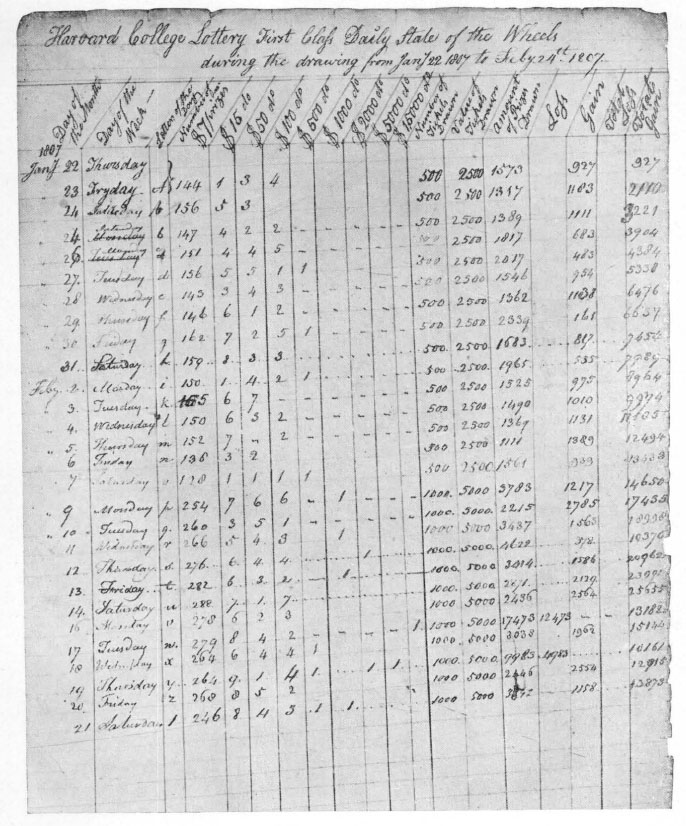 Harvard College Lottery First Class Daily State of the Wheels
during the drawing from Jany 22 1807 to Feby 24th 1807.
Day of the Month Day of the Week Letter of the Number of $7 Prizes $15 do $50 do $100 do $500 do $1000 do $2000 do $5000 do $15000 do Number of Tickets Drawn Value of Tickets Drawn Amount of Prizes Drawn Loss Gain Total Loss Total Gain
1807
Jany 22 Thursday 500 2500 1573 927 927
23 Fryday 144 1 3 4 500 2500 1317 1183 2110
24 Saturday b 156 5 3 500 2500 1389 1111 3221
24 Saturday b 147 4 2 2 500 2500 1817 683 3904
26 151 4 4 5 500 2500 2017 483 4384
27. Tuesday d 156 5 5 1 1 500 2500 1546 954 5338
28 Wednesday e 143 3 4 3 500 2500 1362 1138 6476
29. Thursday f 146 6 1 2 500 2500 2339 161
30 Friday g 162 7 2 5 1 500 2500 1683 817
31. Saturday h 159 8 3 3 500 2500 1965 535 7989
Feby 2. Monday i 150 1 4 2 1 500 2500 1525 975 8964
3. Tuesday k 6 7 500 2500 1490 1010 9974
4. Wednesday l 150 6 3 2 500 2500 1369 1131
5 Thursday m 152 7 - 2 500 2500 1111 1389 12494
6 Friday n 136 3 2 500 2500 1561
7 Saturday o 128 1 1 1 1 1000 5000 3783 1217 14650
9 Monday p 254 7 6 6 - 1 1000 5000 2215 2785 17435
10 Tuesday q 260 3 5 1 1000 5000 3437 1563
11 Wednesday r 266 5 4 3 1 1000 5000 4622 378
12 Thursday s 276 6 4 4 1 1000 5000 3414 1586 20962
13. Friday t 282 6 3 2 1 1000 5000
14. Saturday u 288 7 1 7 1000 5000 2436 2564 25655
16 Monday v 278 6 2 3 1 1000 5000 17473 12473 13182
17 Tuesday w 279 8 4 2 1000 5000 3038 1962 15144
18 Wednesday x 264 6 4 4 1 1 1 1000 5000 9983
19 Thursday y 264 9 1 4 1 1000 5000 2446 2554
20 Friday z 268 8 5 2 1000 5000 1158 13873
21 Saturday 246 8 4 3 1 1